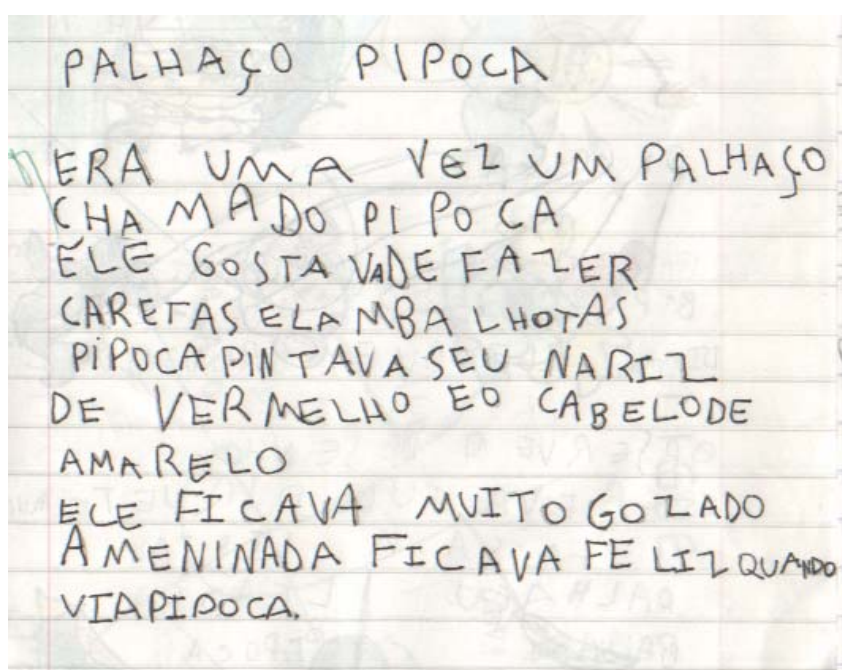 PALHAÇO PIPOCA
ERA UMA VEZ UM PALHAÇO
CHAMADO PIPOCA
ELE GOSTAVA DE FAZER
CARETAS E LAMBALHOTAS
PIPOCA PINTAVA SEU NARIZ
DE VERMELHO E O CABELO DE
AMARELO
ELE FICAVA MUITO GOZADO
A MENINADA FICAVA FELIZ QUANDO
VIA PIPOCA.